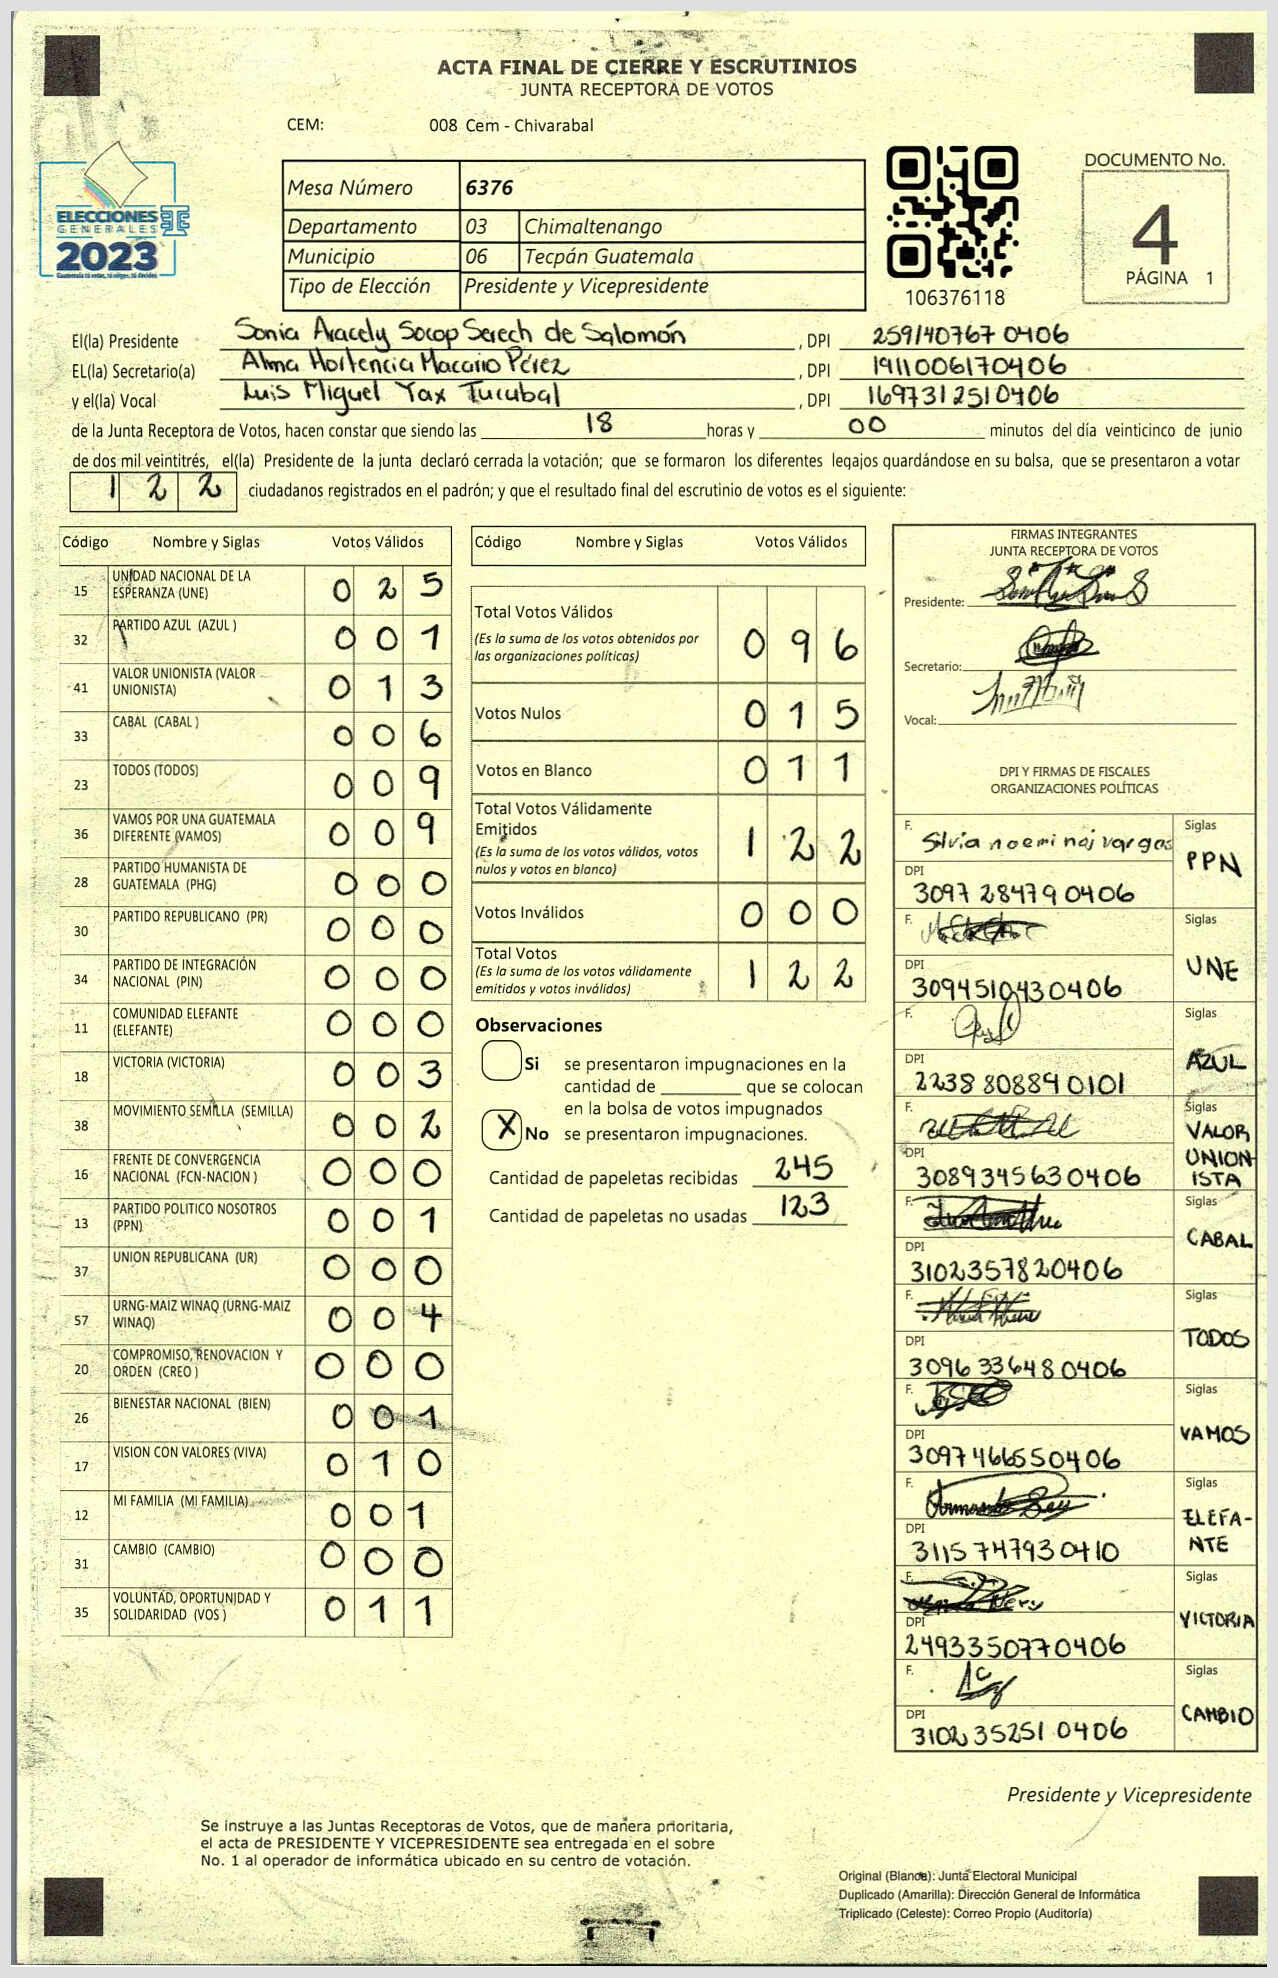 ACTA FINAL DE CIERRE Y ESCRUTINIOS
JUNTA RECEPTORA DE VOTOS
CEM: 008 Cem - Chivarabal
ELECCIONES
GENERALES
2023
Guatemala tú votas, tú eliges, tú decides
Mesa Número 6376
Departamento 03 Chimaltenango
Municipio 06 Tecpán Guatemala
Tipo de Elección Presidente y Vicepresidente
106376118
DOCUMENTO No.
4
PÁGINA 1
El(la) Presidente Sonia Aracely Socop Serech de Salomón, DPI 259140767 0406
EL(la) Secretario(a) Alma Hortencia Macario Pérez, DPI 1911006170406
y el(la) Vocal Luis Miguel Yax Tucubal, DPI 1697312510406
de la Junta Receptora de Votos, hacen constar que siendo las 18 horas y 00 minutos del día veinticinco de junio
de dos mil veintitrés, el(la) Presidente de la junta declaró cerrada la votación; que se formaron los diferentes legajos guardándose en su bolsa, que se presentaron a votar
1 2 2 ciudadanos registrados en el padrón; y que el resultado final del escrutinio de votos es el siguiente:
Código Nombre y Siglas Votos Válidos
15 UNIDAD NACIONAL DE LA ESPERANZA (UNE) 0 2 5
32 PARTIDO AZUL (AZUL ) 0 0 1
41 VALOR UNIONISTA (VALOR UNIONISTA) 0 1 3
33 CABAL (CABAL ) 0 0 6
23 TODOS (TODOS) 0 0 9
36 VAMOS POR UNA GUATEMALA DIFERENTE (VAMOS) 0 0 9
28 PARTIDO HUMANISTA DE GUATEMALA (PHG) 0 0 0
30 PARTIDO REPUBLICANO (PR) 0 0 0
34 PARTIDO DE INTEGRACIÓN NACIONAL (PIN) 0 0 0
11 COMUNIDAD ELEFANTE (ELEFANTE) 0 0 0
18 VICTORIA (VICTORIA) 0 0 3
38 MOVIMIENTO SEMILLA (SEMILLA) 0 0 2
16 FRENTE DE CONVERGENCIA NACIONAL (FCN-NACION ) 0 0 0
13 PARTIDO POLITICO NOSOTROS (PPN) 0 0 1
37 UNION REPUBLICANA (UR) 0 0 0
57 URNG-MAIZ WINAQ (URNG-MAIZ WINAQ) 0 0 4
20 COMPROMISO, RENOVACION Y ORDEN (CREO ) 0 0 0
26 BIENESTAR NACIONAL (BIEN) 0 0 1
17 VISION CON VALORES (VIVA) 0 1 0
12 MI FAMILIA (MI FAMILIA) 0 0 1
31 CAMBIO (CAMBIO) 0 0 0
35 VOLUNTAD, OPORTUNIDAD Y SOLIDARIDAD (VOS ) 0 1 1
Código Nombre y Siglas Votos Válidos
Total Votos Válidos
(Es la suma de los votos obtenidos por
las organizaciones políticas) 0 9 6
Votos Nulos 0 1 5
Votos en Blanco 0 1 1
Total Votos Válidamente
Emitidos
(Es la suma de los votos válidos, votos
nulos y votos en blanco) 1 2 2
Votos Inválidos 0 0 0
Total Votos
(Es la suma de los votos válidamente
emitidos y votos inválidos) 1 2 2
Observaciones
Si se presentaron impugnaciones en la
cantidad de ________ que se colocan
en la bolsa de votos impugnados
X No se presentaron impugnaciones.
Cantidad de papeletas recibidas 245
Cantidad de papeletas no usadas 123
FIRMAS INTEGRANTES
JUNTA RECEPTORA DE VOTOS
Presidente:
Secretario:
Vocal:
DPI Y FIRMAS DE FISCALES
ORGANIZACIONES POLÍTICAS
F. Silvia noemi noj vargas Siglas PPN
DPI 3097 28479 0406
F. Siglas UNE
DPI 3094510430406
F. Siglas AZUL
DPI 2238 80884 0101
F. Siglas VALOR UNION-ISTA
DPI 3089345630406
F. Siglas CABAL
DPI 3102357820406
F. Siglas TODOS
DPI 3096 336480406
F. Siglas VAMOS
DPI 3097466550406
F. Siglas ELEFA-NTE
DPI 3115 747930410
F. Siglas VICTORIA
DPI 2493350770406
F. Siglas CAMBIO
DPI 3102 35251 0406
Presidente y Vicepresidente
Se instruye a las Juntas Receptoras de Votos, que de manera prioritaria,
el acta de PRESIDENTE Y VICEPRESIDENTE sea entregada en el sobre
No. 1 al operador de informática ubicado en su centro de votación.
Original (Blanca): Junta Electoral Municipal
Duplicado (Amarilla): Dirección General de Informática
Triplicado (Celeste): Correo Propio (Auditoría)